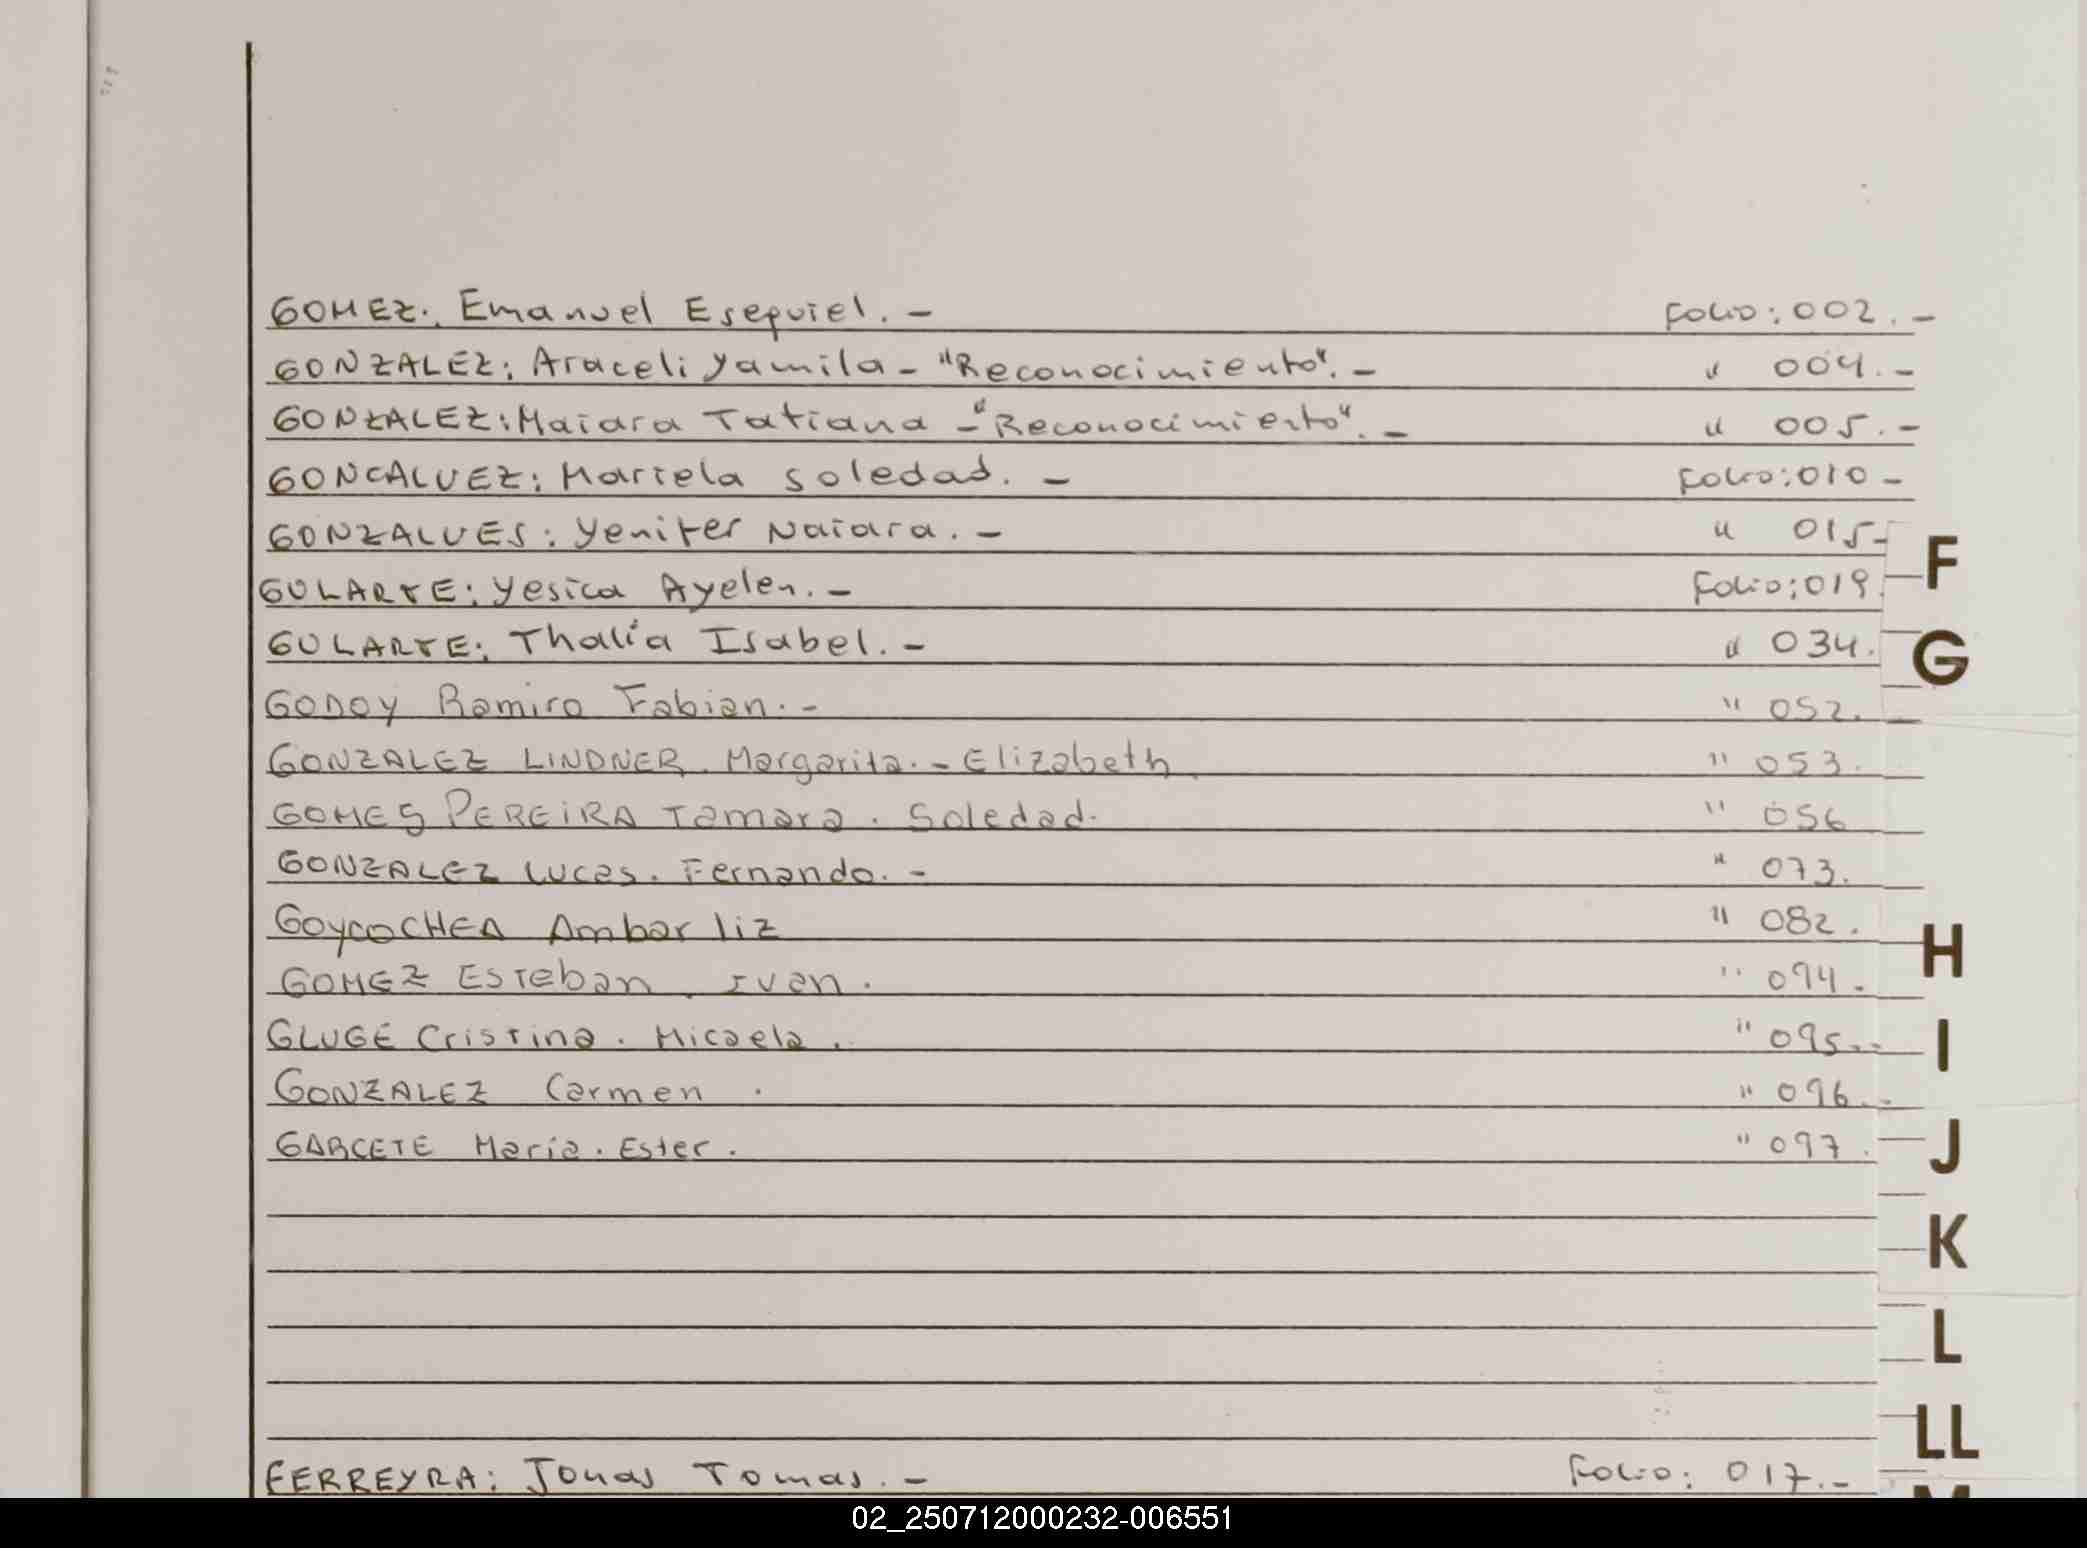 GOMEZ: Emanuel Esequiel.- Folio: 002.-
GONZALEZ: Araceli Yamila - "Reconocimiento".- " 004.-
GONZALEZ: Maiara Tatiana - "Reconocimiento".- " 005.-
GONCALVEZ: Mariela Soledad.- Folio: 010-
GONZALVES: Yenifer Naiara.- " 015-
GULARTE: Yesica Ayelen.- Folio: 019.
GULARTE: Thalía Isabel.- " 034.
GODOY Ramiro Fabian.- " 052.
GONZALEZ LINDNER. Margarita.- Elizabeth. " 053.
GOMES PEREIRA Tamara. Soledad. " 056
GONZALEZ Lucas. Fernando.- " 073.
GOYCOCHEA Ambar liz " 082.
GOMEZ Esteban. Ivan. " 094.
GLUGE Cristina. Micaela. " 095.-
GONZALEZ Carmen. " 096.-
GARCETE María. Ester. " 097.
FERREYRA: Jonas Tomas.- Folio: 017.-
F
G
H
I
J
K
L
LL
M
02_250712000232-006551